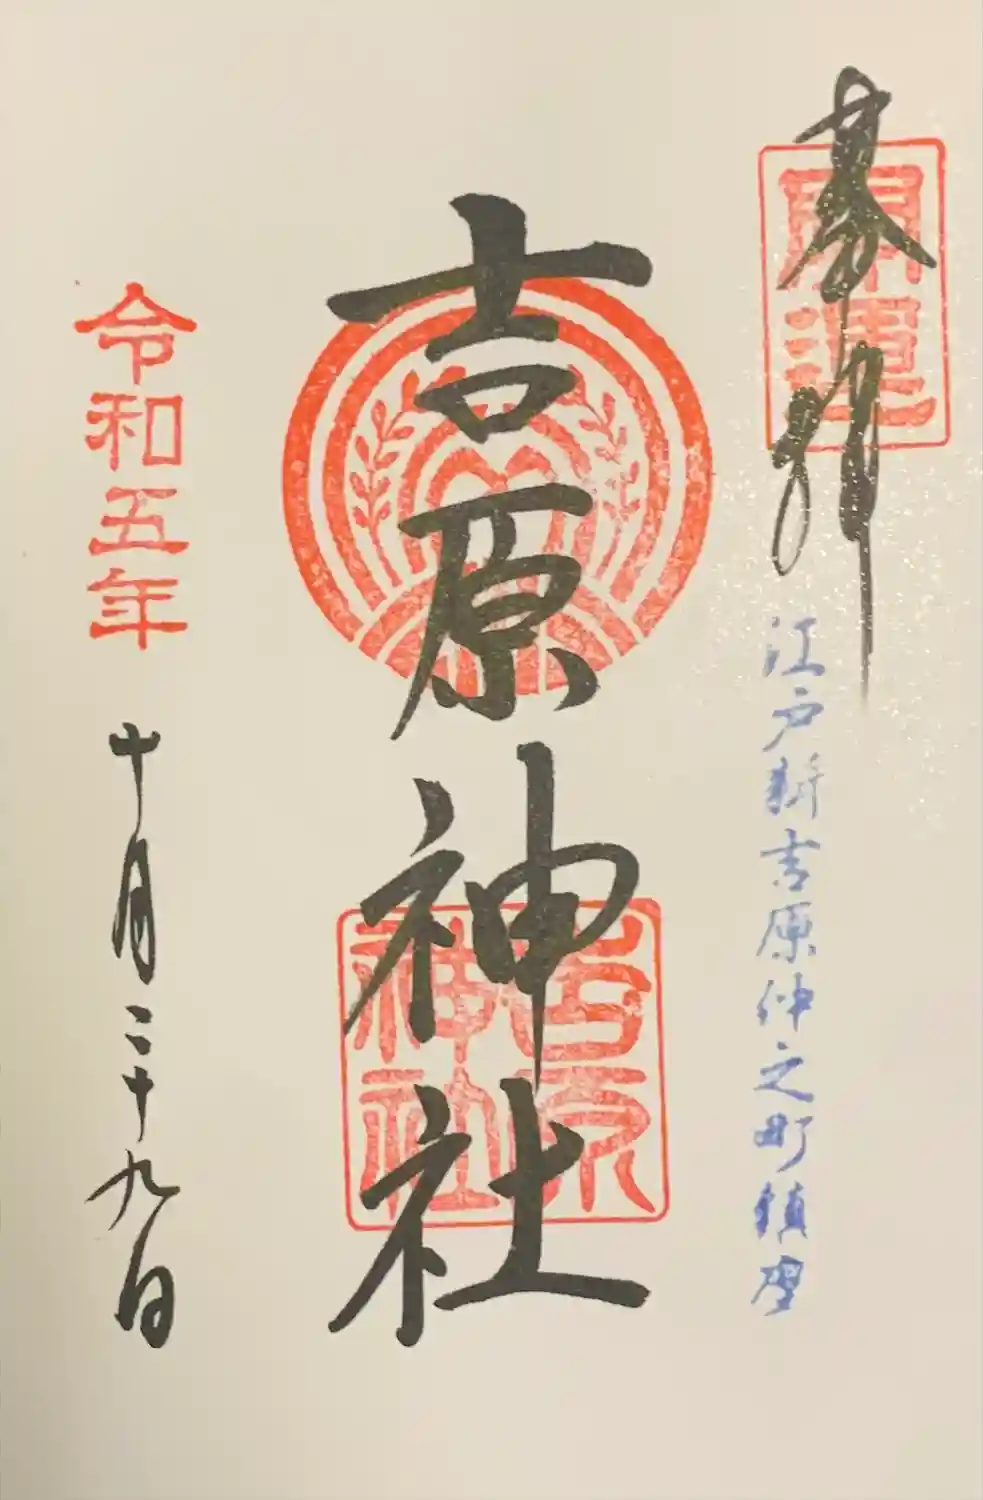 奉拝
開運
江戸新吉原仲之町鎮座
吉原神社
吉原
神社
令和五年
十月二十九日